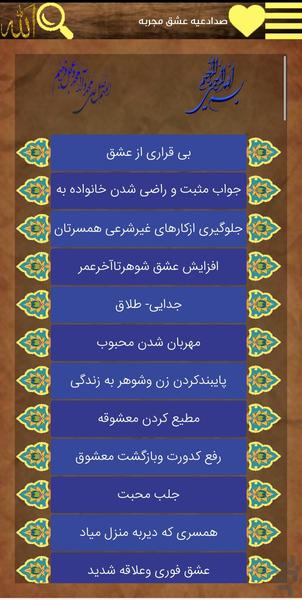 صدادعیه عشق مجربه
الله
بی قراری از عشق
جواب مثبت و راضی شدن خانواده به
جلوگیری ازکارهای غیرشرعی همسرتان
افزایش عشق شوهرتاآخرعمر
جدایی- طلاق
مهربان شدن محبوب
پایبندکردن زن وشوهر به زندگی
مطیع کردن معشوقه
رفع کدورت وبازگشت معشوق
جلب محبت
همسری که دیربه منزل میاد
عشق فوری وعلاقه شدید